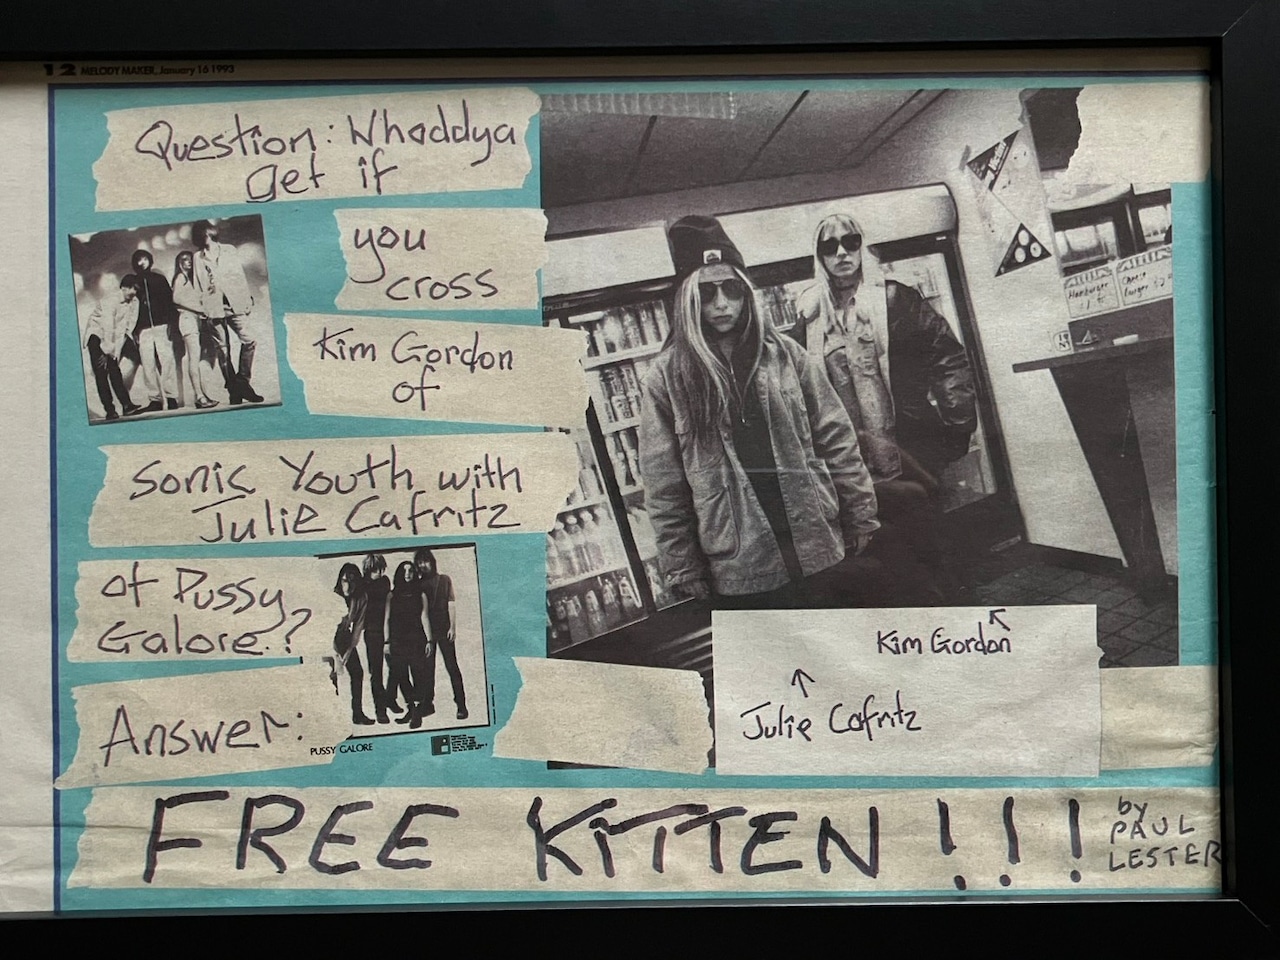 12 MELODY MAKER, January 16 1993
Question: Whaddya
get if
you
cross
Kim Gordon
of
Sonic Youth with
Julie Cafritz
of Pussy
Galore?
Answer:
PUSSY GALORE
Hamburger
Cheese
burger
Kim Gordon
Julie Cafritz
FREE KITTEN!!!
by
PAUL
LESTER